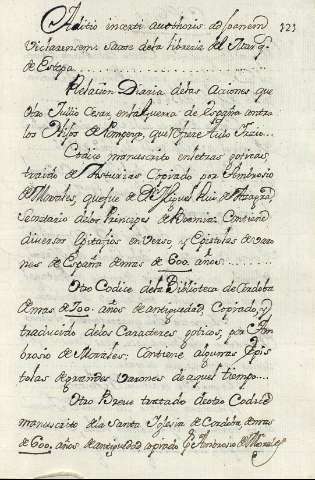 Aditio incerti authoris ad Joanem 323
Viclarensem. Sacose dela libreria del Marq.s
de Estepa
Relacion Diaria delas Acciones que
obro Jullio Cesar, enla Guerra de España contra
los Hijos de Pompeyo, que
Codice manuscrito en letras goticas,
traido de Asturias Copiado por Ambrosio
de Morales, que fue de Dn Miguel Ruiz de Azagra,
secretario delos Principes de Boemia: Contiene
diversos Epitafios en Verso y Epistolas de varo-
nes de España de mas de 600 años
Otro Codice dela Biblioteca de Cordoba
de mas de 700 años de antiguedad, Copiado, y
traducido delos Caracteres goticos, por Am-
brosio de Morales; Contiene algunas Epis
tolas de grandes varones de aquel tiempo
Otro Breve tratado de otro Codice
manuscrito dela Santa Iglesia de Cordoba, de mas
de 600 años de antiguedad copiado Pr Ambrosio de Morales